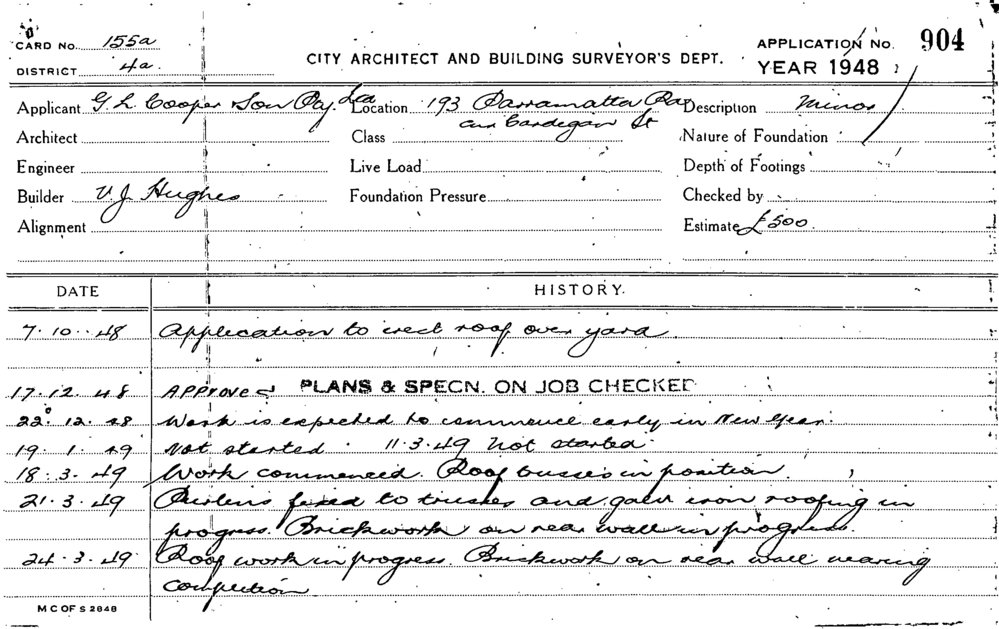 CARD No. 155a
DISTRICT 4a
CITY ARCHITECT AND BUILDING SURVEYOR'S DEPT.
APPLICATION No. 904
YEAR 1948
Applicant G L Cooper Son Pty Ltd Location 193 Parramatta Rd Description Minor
cnr Cardigan St
Architect Class Nature of Foundation
Engineer Live Load Depth of Footings
Builder V. J. Hughes Foundation Pressure Checked by
Alignment Estimate £500
DATE HISTORY.
7.10.48 Application to erect roof over yard
17.12.48 APProved PLANS & SPECN. ON JOB CHECKED
22.12.48 Work is expected to commence early in New Year.
19.1.49 Not started 11.3.49 Not started
18.3.49 Work commenced. Roof trusses in position
21.3.49 Purlins fixed to trusses and galv iron roofing in
progress. Brickwork on rear wall in progress.
24.3.49 Roof work in progress. Brickwork on rear wall nearing
completion.
M C OF S 2848